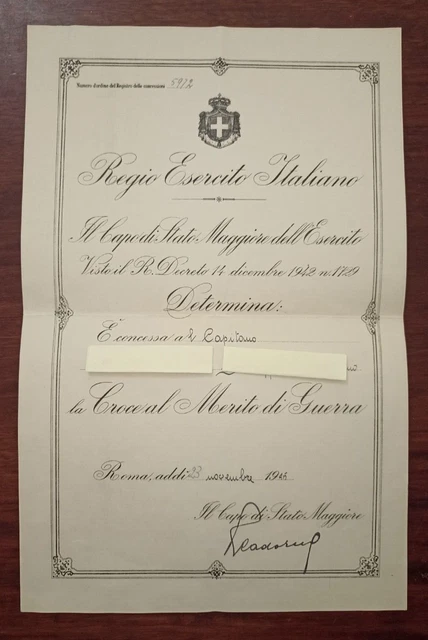 Numero d'ordine del Registro delle concessioni 597
Regio Esercito Italiano
Il Capo di Stato Maggiore dell'Esercito
Visto il R. Decreto 14 dicembre 1942 n. 1729
Determina:
È concessa al Capitano
la Croce al Merito di Guerra
Roma, addì 23 novembre 194
Il Capo di Stato Maggiore
Cadorna